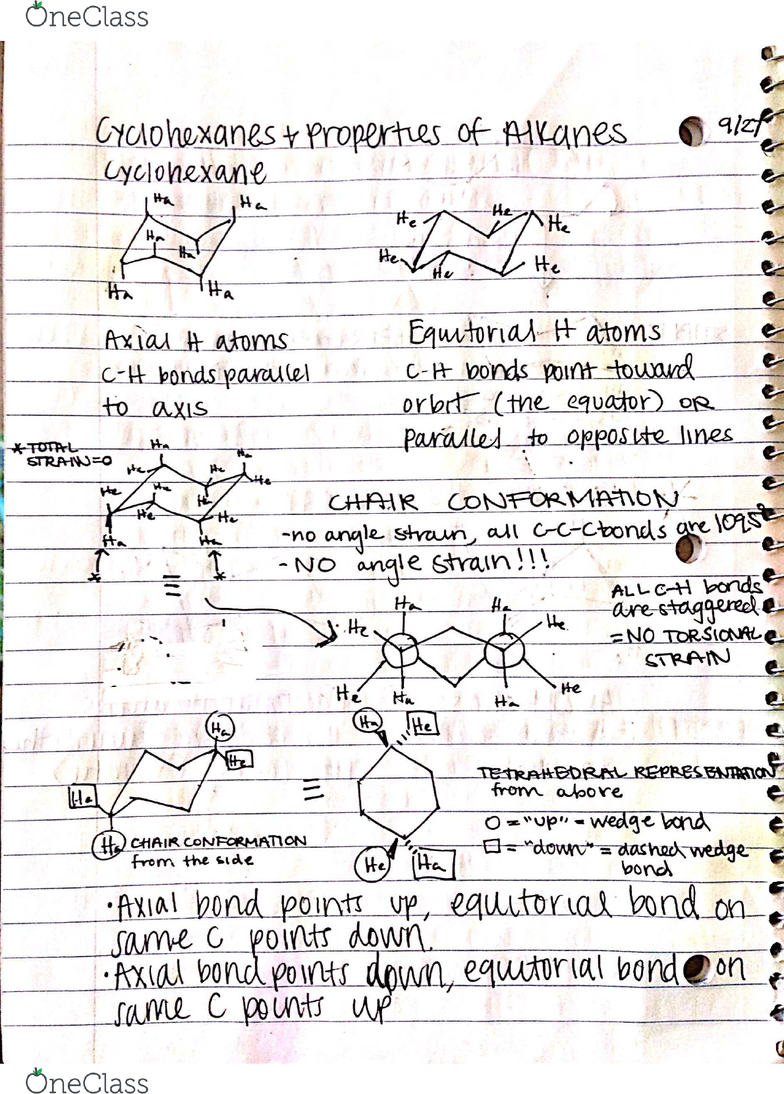 OneClass
9/27
Cyclohexanes + Properties of Alkanes
Cyclohexane
Ha Ha
Ha Ha
Ha Ha
He He He
He He He
Axial H atoms
C-H bonds parallel
to axis
Equitorial H atoms
C-H bonds point toward
orbit (the equator) OR
parallel to opposite lines
* TOTAL
STRAIN=0
Ha Ha
He He He
He Ha He
He He
Ha Ha
* *
≡
CHAIR CONFORMATION
-no angle strain, all C-C-C bonds are 109.5°
- NO angle strain!!!
ALL C-H bonds
are staggered
= NO TORSIONAL
STRAIN
Ha Ha
He He
He Ha Ha He
Ha
He
Ha
Ha
CHAIR CONFORMATION
from the side
≡
Ha He
He Ha
TETRAHEDRAL REPRESENTATION
from above
O = "up" = wedge bond
□ = "down" = dashed wedge
bond
•Axial bond points up, equitorial bond on
same C points down.
•Axial bond points down, equitorial bond on
same C points up
OneClass